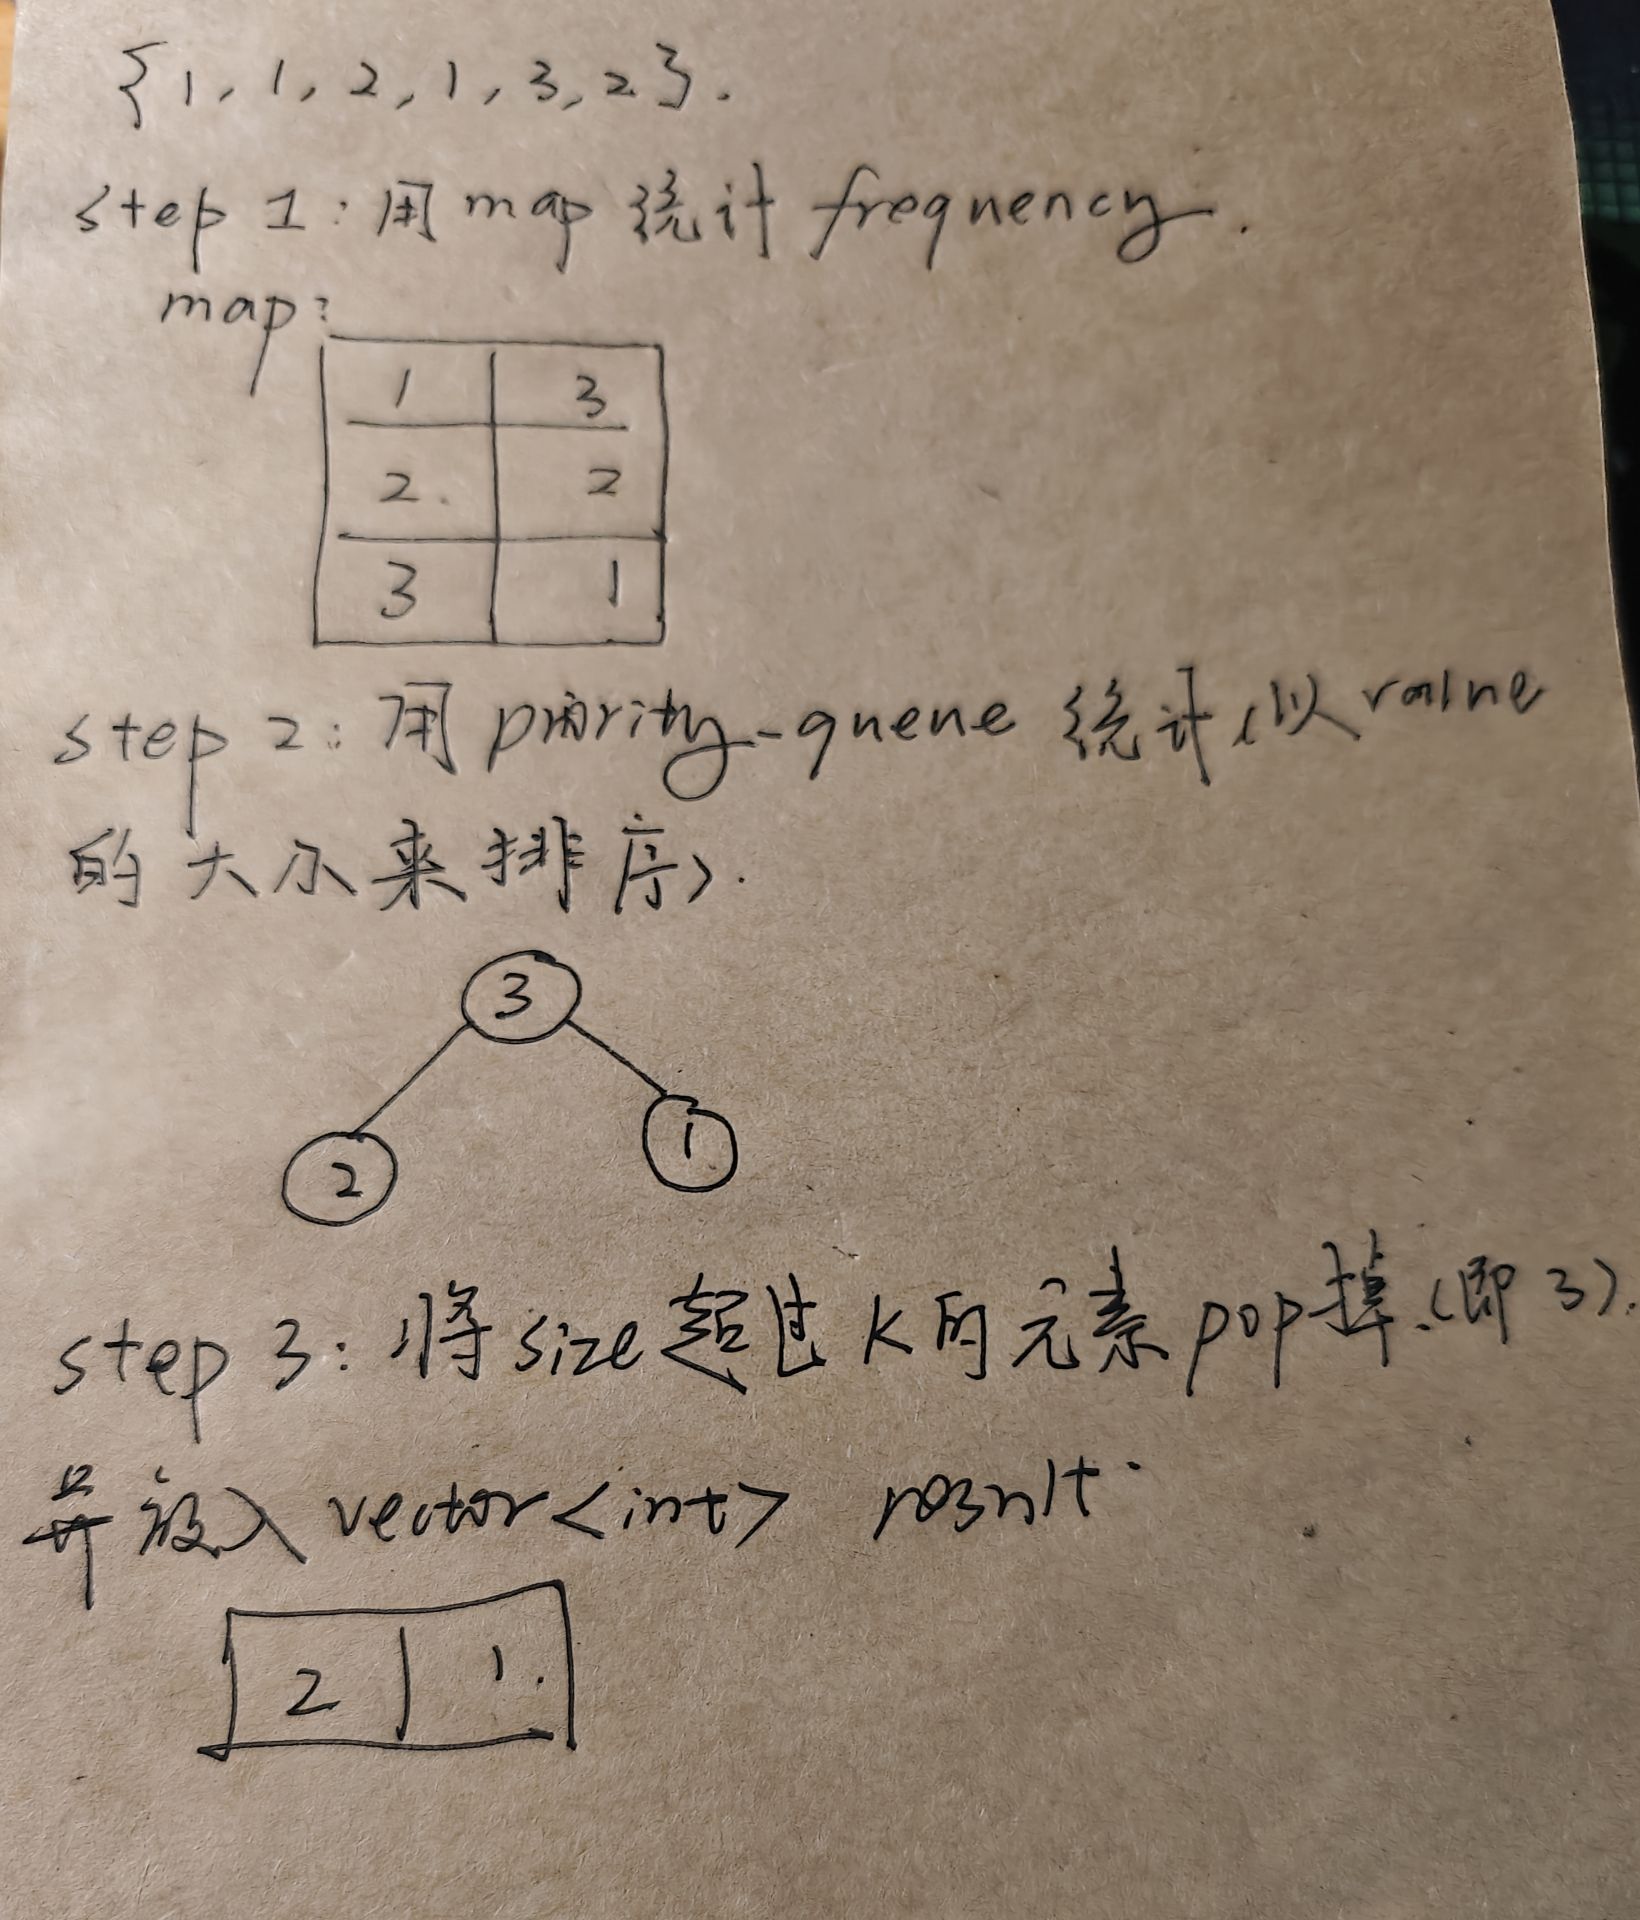 {1, 1, 2, 1, 3, 2}.
step 1: 用 map 统计 frequency.
map:
1 3
2. 2
3 1
step 2: 用 priority-queue 统计(以 value
的大小来排序).
3
2 1
step 3: 将 size 超过 K 的元素 pop 掉.(即 3).
并放入 vector<int> result.
2 1.